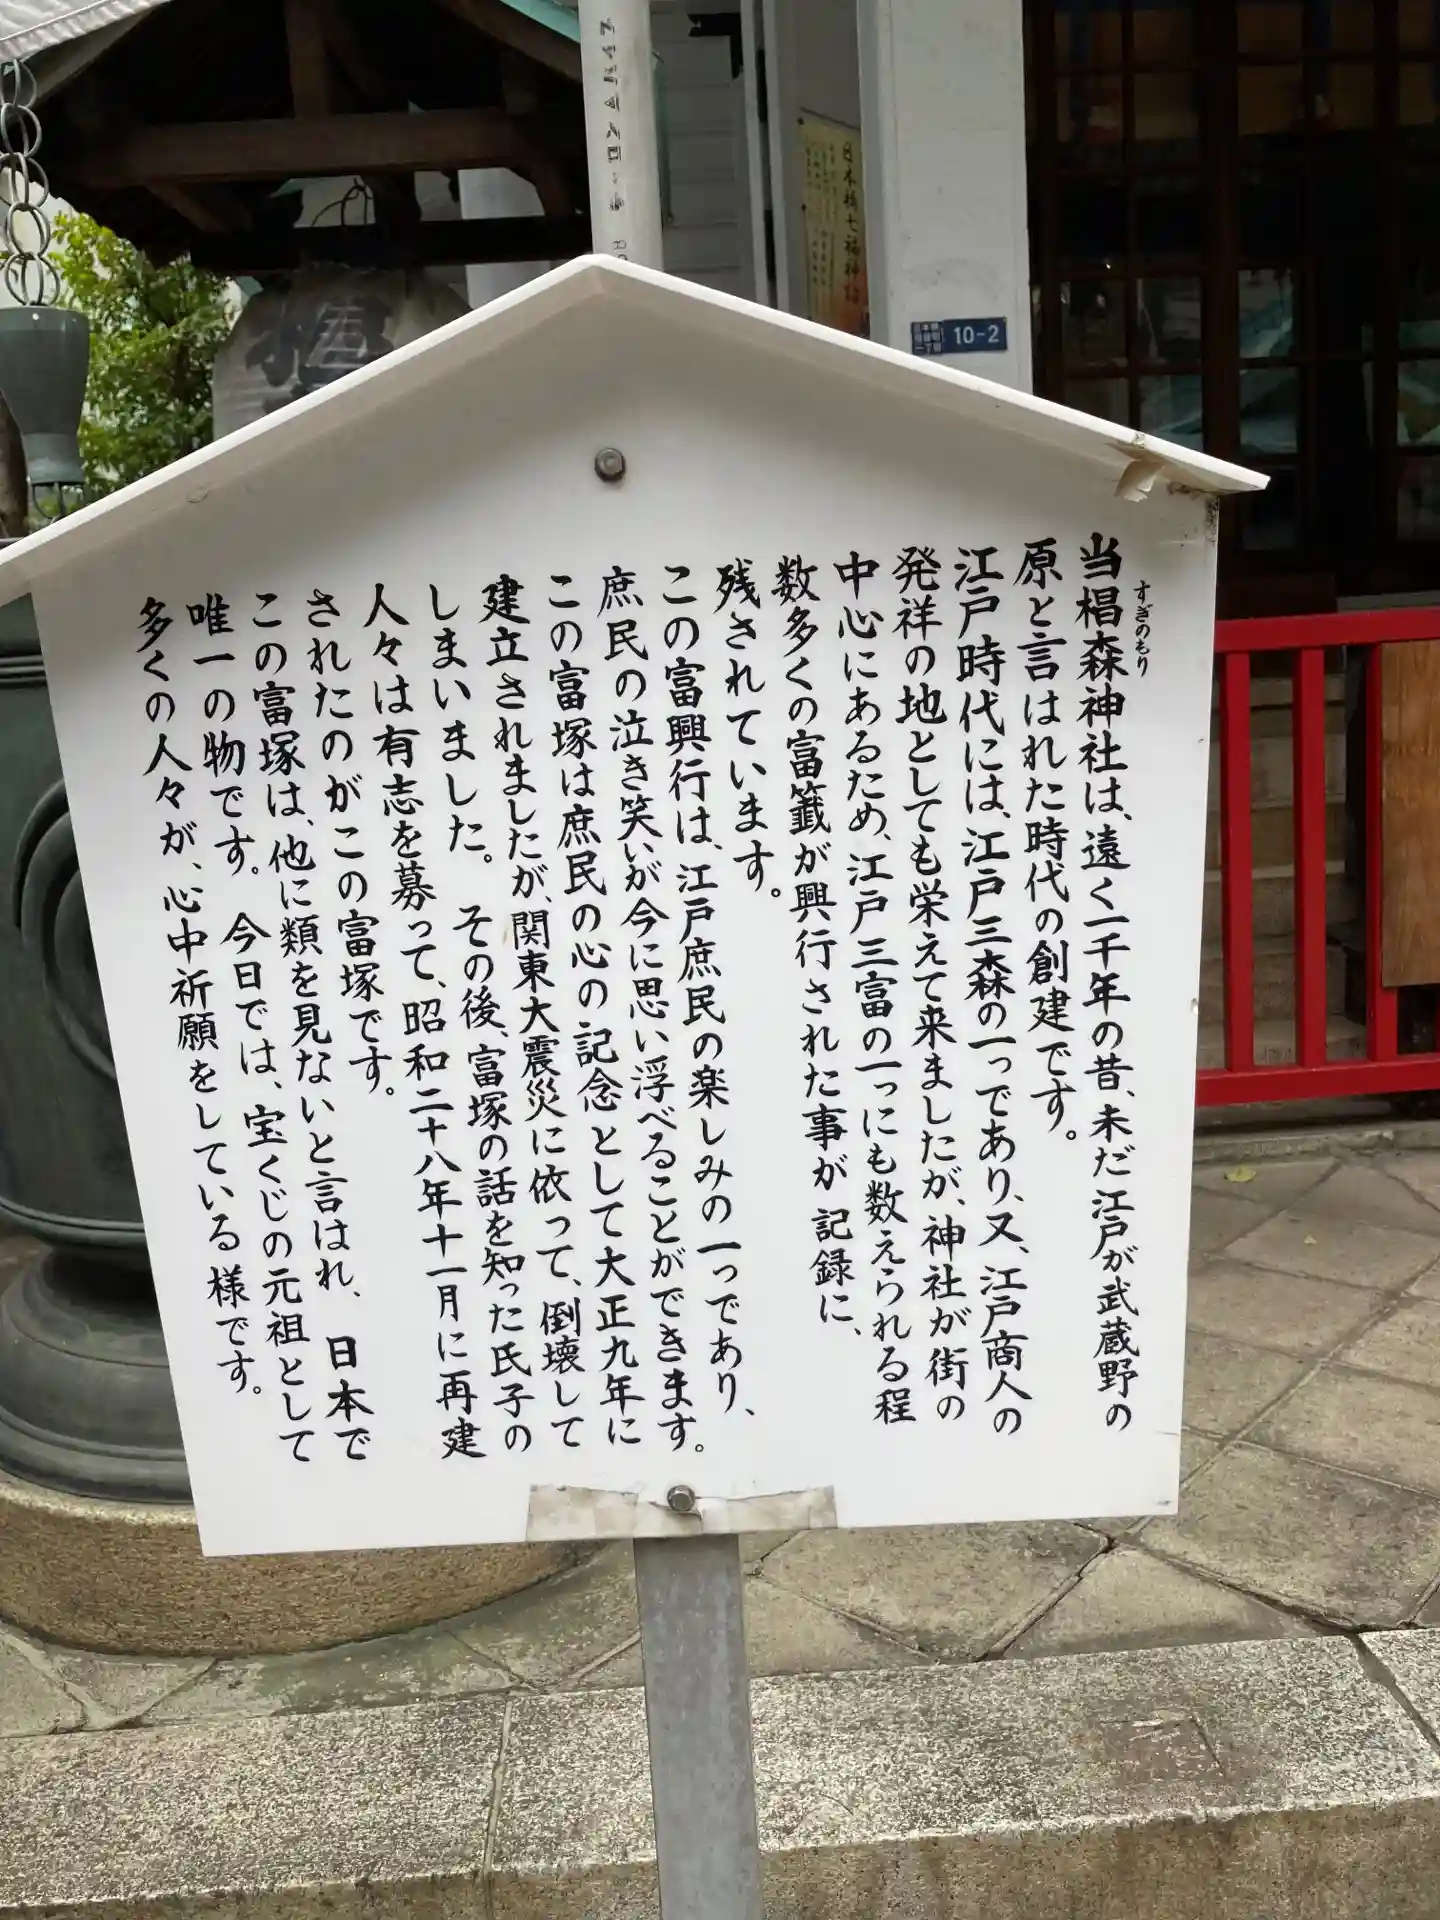 当椙森神社は、遠く一千年の昔、未だ江戸が武蔵野の
すぎのもり
原と言はれた時代の創建です。
江戸時代には、江戸三森の一つであり、又、江戸商人の
発祥の地としても栄えて来ましたが、神社が街の
中心にあるため、江戸三富の一つにも数えられる程
数多くの富籤が興行された事が記録に、
残されています。
この富興行は、江戸庶民の楽しみの一つであり、
庶民の泣き笑いが今に思い浮べることができます。
この富塚は庶民の心の記念として大正九年に
建立されましたが、関東大震災に依って、倒壊して
しまいました。その後、富塚の話を知った氏子の
人々は有志を募って、昭和二十八年十一月に再建
されたのがこの富塚です。
この富塚は、他に類を見ないと言はれ、日本で
唯一の物です。今日では、宝くじの元祖として
多くの人々が、心中祈願をしている様です。
日本橋七福神詣
10-2